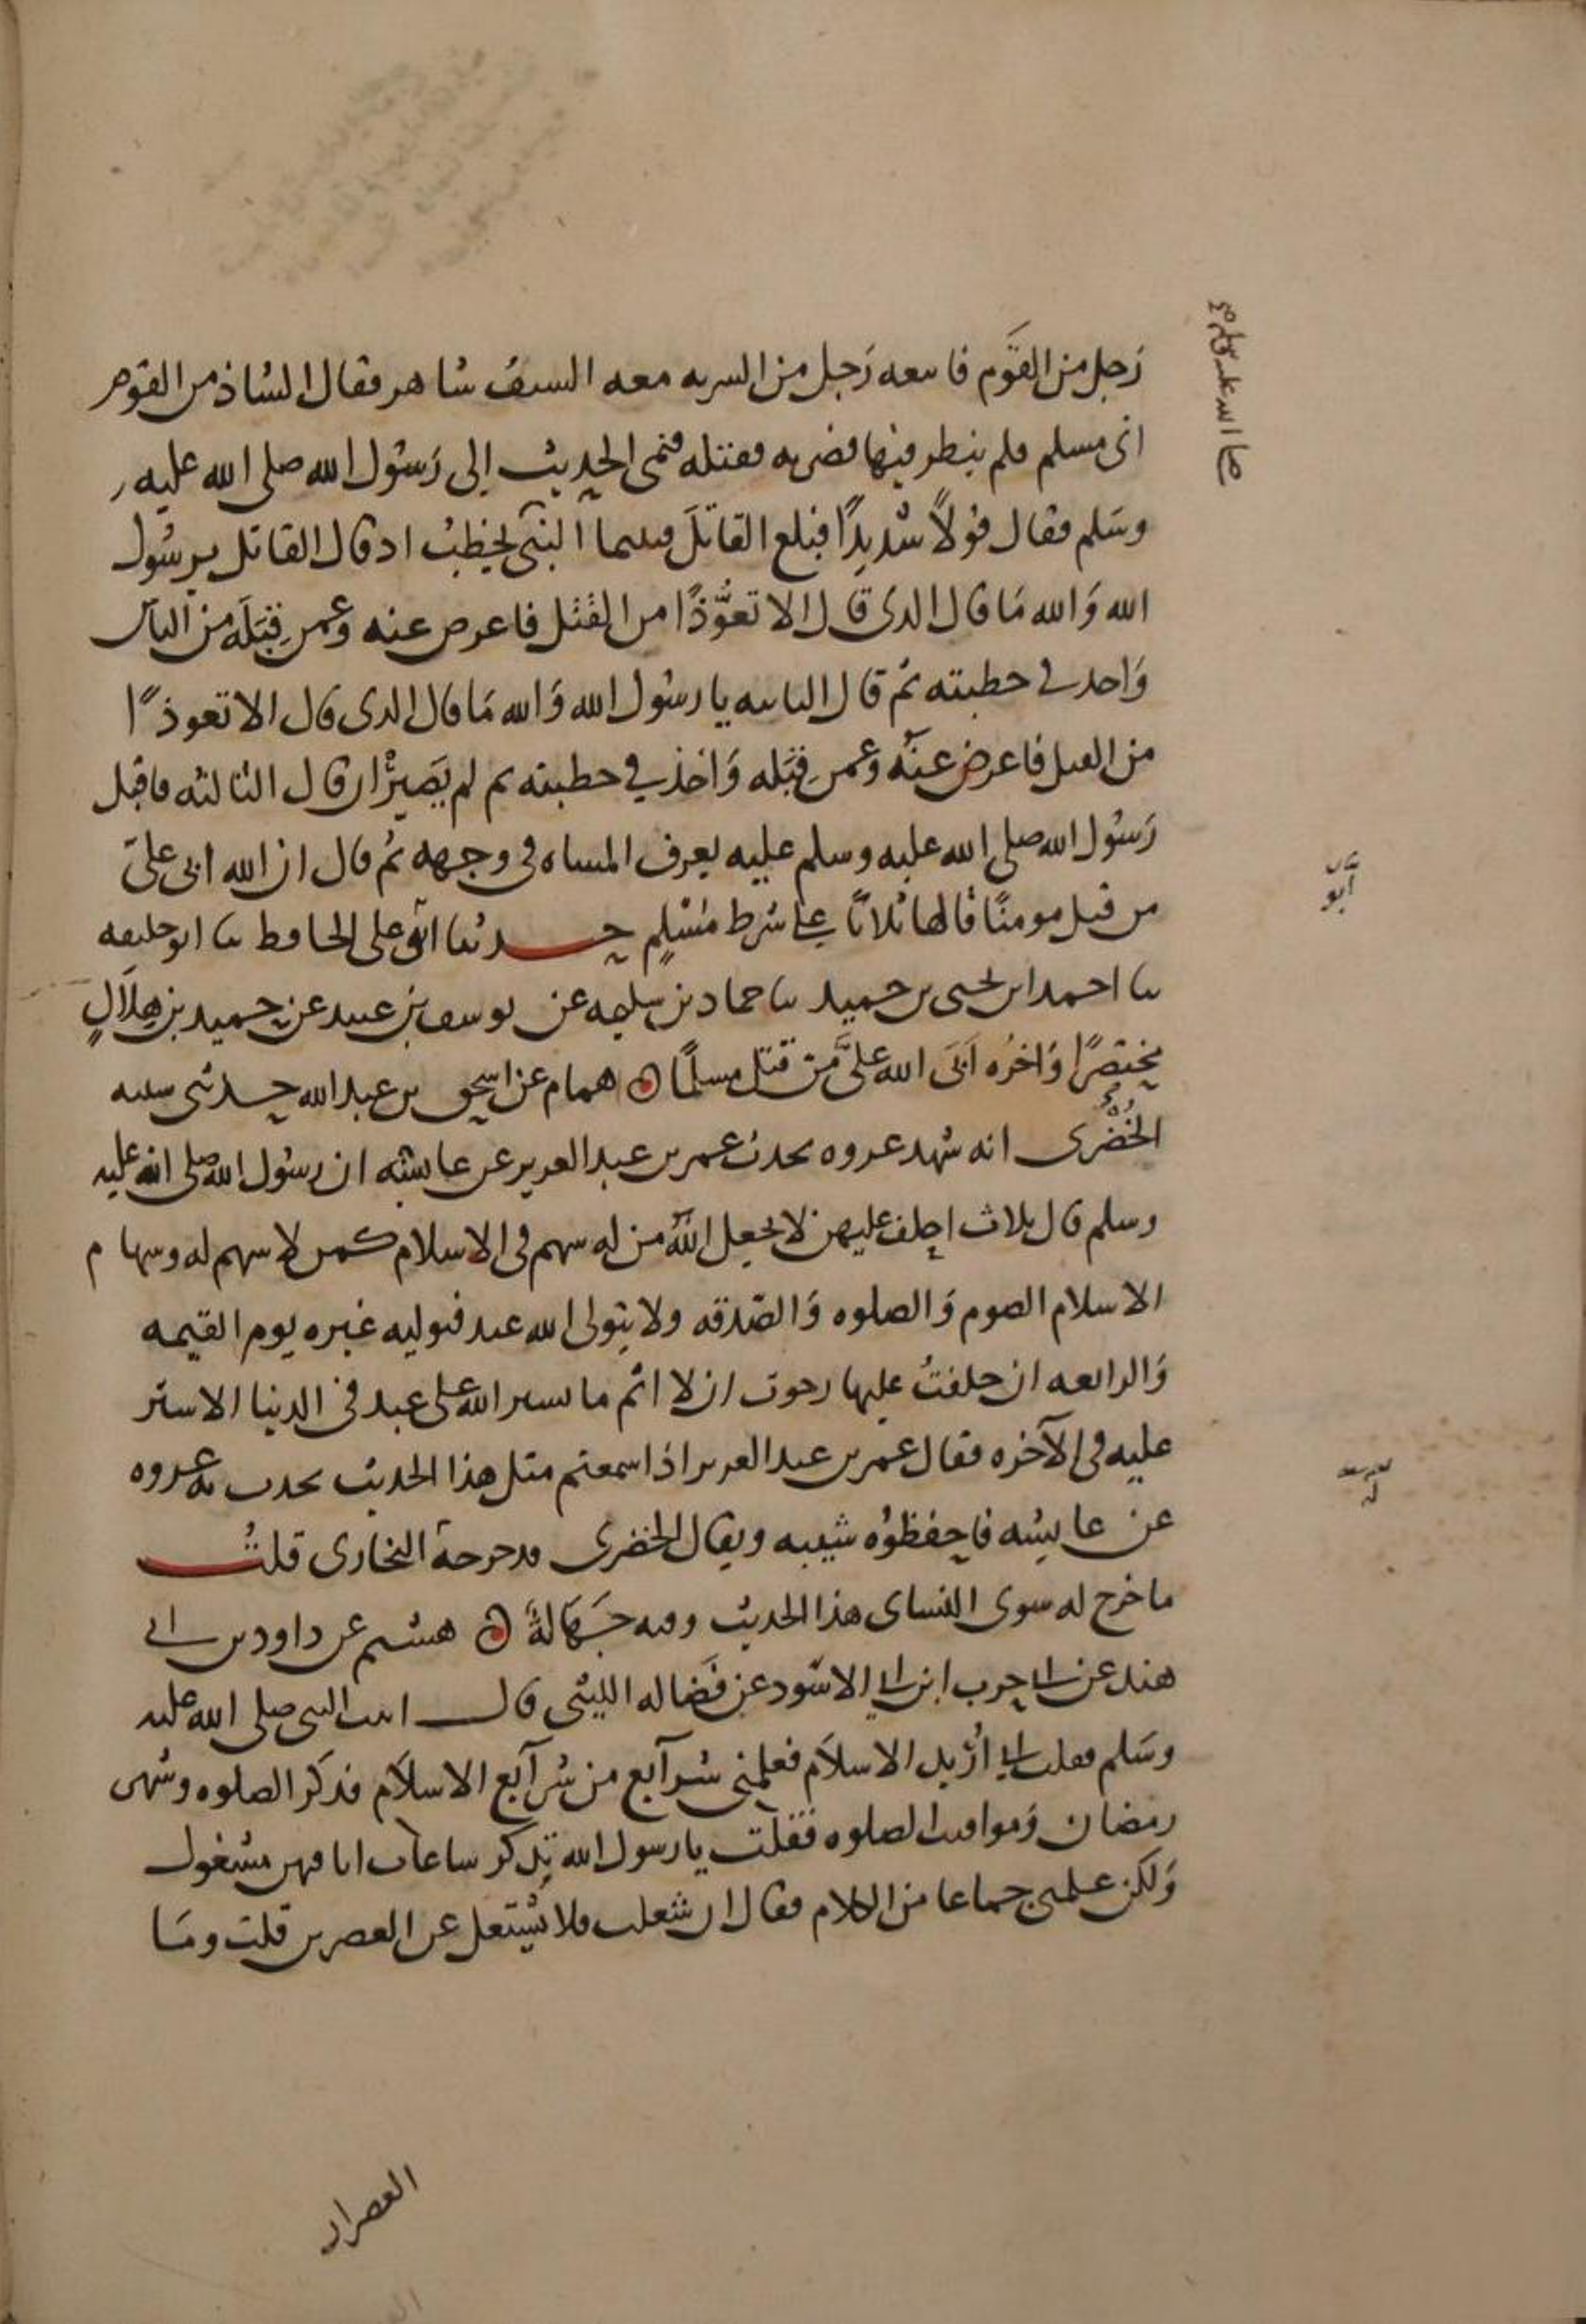 رَجل من القَوم فاتبعه رَجل من السريه معه السيف شاهر فقال الشاذ من القوم
انى مسلم فلم ينظر فيها فضربه فقتله فنمى الحديث إلى رَسُول الله صلى الله عليه
وسَلم فقال قولاً شديدًا فبلغ القاتلَ فبينما النبى يخطبُ اذ قال القاتل يرسُول
الله وَالله مَا قال الذى قال الا تعوُّذًا من القَتل فاعرض عنه وعمن قِبَلَه من الناس
وَاخذ في خطبته ثم قال الثانيه يا رسُول الله وَالله مَا قال الذى قال الا تعوذًا
من القتل فاعرض عنه وعمن قِبَله وَاخذ في خطبته ثم لم يَصبِرْ ان قال الثالثه فاقبل
رَسُول الله صلى الله عليه وسلم عليه يعرف المساه فى وجهه ثم قال ان الله ابى علىّ
من قتل مومنًا قالها ثلاثًا على شرط مُسْلمٍ حدثنا ابو على الحافظ ثنا ابو خليفه
ثنا احمد ابن يحيى بن حميد ثنا حماد بن سلمه عن يوسف بن عبيد عن حميد بن هِلَالٍ
مختصرًا وَاخرُه اَبَى الله علىَّ من قتل مسلمًا همام عن اسحق بن عبد الله حدثنى شيبه
الخُضْرى انه شهد عروه يحدث عمر بن عبد العزيز عن عايشه ان رسُول الله صلى الله عليه
وسلم قال ثلاث احلف عليهن لا يجعل الله من له سهم فى الاسلام كمن لا سهم له وسهام
الاسلام الصوم وَالصلوه وَالصّدقه ولا يتولى الله عبد فيوليه غيره يوم القيمه
وَالرابعه ان حلفتُ عليها رجوت ان لا اثم ما يستر الله على عبد فى الدنيا الا ستر
عليه فى الآخره فقال عمر بن عبد العزيز اذا سمعتم مثل هذا الحديث يحدث به عروه
عن عايشه فاحفظوُه شيبه ويقال الخضرى قد خرجه البخارى قلتُ
ما خرج له سوى النساى هذا الحديث وفيه جَهَالةٌ هشيم عن داود بن ابى
هند عن ابى حرب ابن ابي الاسَود عن فَضاله الليثى قال اتيت النبى صلى الله عليه
وسَلم فقلت انى اُريد الاسلاَم فعلمنى شرآيع من شرآيع الاسلاَم فذكر الصلوه وشهر
رمضان وَمواقيت الصلوه فقلت يا رسول الله تذكر ساعات انا فيهن مشغول
وَلكن علمنى جماعا من الكلام فقال ان شغلت فلا تشتغل عن العصرين قلت ومَا
صلى الله عليه وسلم
ابو
العصران